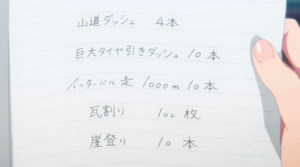 山道ダッシュ 4本
巨大タイヤ引きダッシュ 10本
インターバル走 1000m 10本
瓦割り 100枚
崖登り 10本